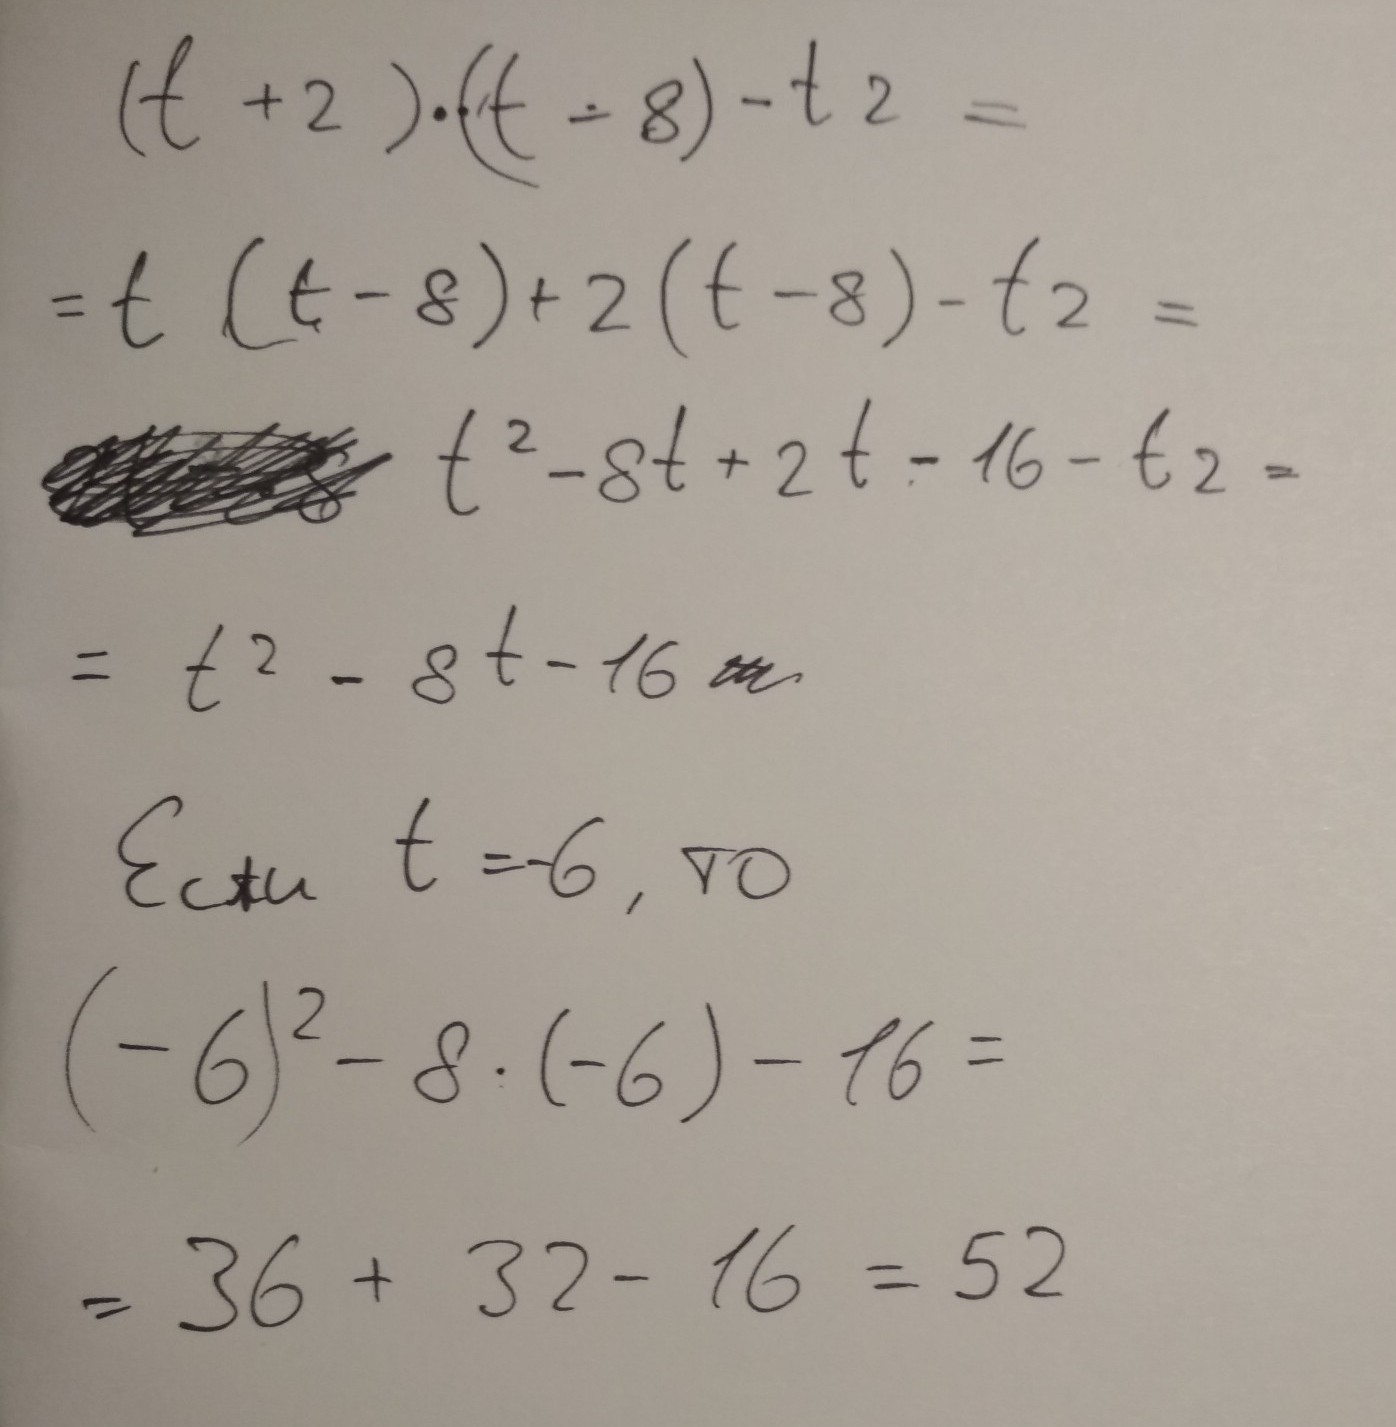 (t + 2) · (t - 8) - t2 =
= t (t - 8) + 2 (t - 8) - t2 =
t² - 8t + 2t - 16 - t2 =
= t² - 8t - 16
Если t = -6, то
(-6)² - 8 · (-6) - 16 =
= 36 + 32 - 16 = 52